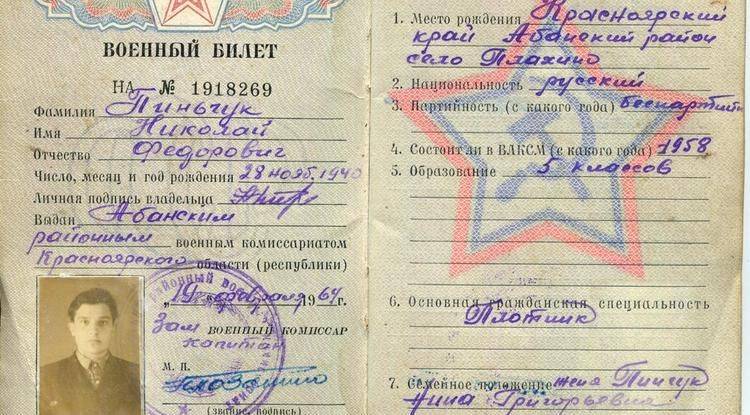 ВОЕННЫЙ БИЛЕТ
НА № 1918269
Фамилия Пиньчук
Имя Николай
Отчество Федорович
Число, месяц и год рождения 28 нояб. 1940
Личная подпись владельца
Выдан Абанским
районным военным комиссариатом
Красноярского области (республики)
"19" февраля 1964 г.
Зам военный комиссар
капитан
М. П.
(звание, подпись)
1. Место рождения Красноярский
край Абанский район
село Плахино
2. Национальность русский
3. Партийность (с какого года) беспартийн
4. Состоит ли в ВЛКСМ (с какого года) 1958
5. Образование 5 классов
6. Основная гражданская специальность
Плотник
7. Семейное положение жена Пинчук
Нина Григорьевна